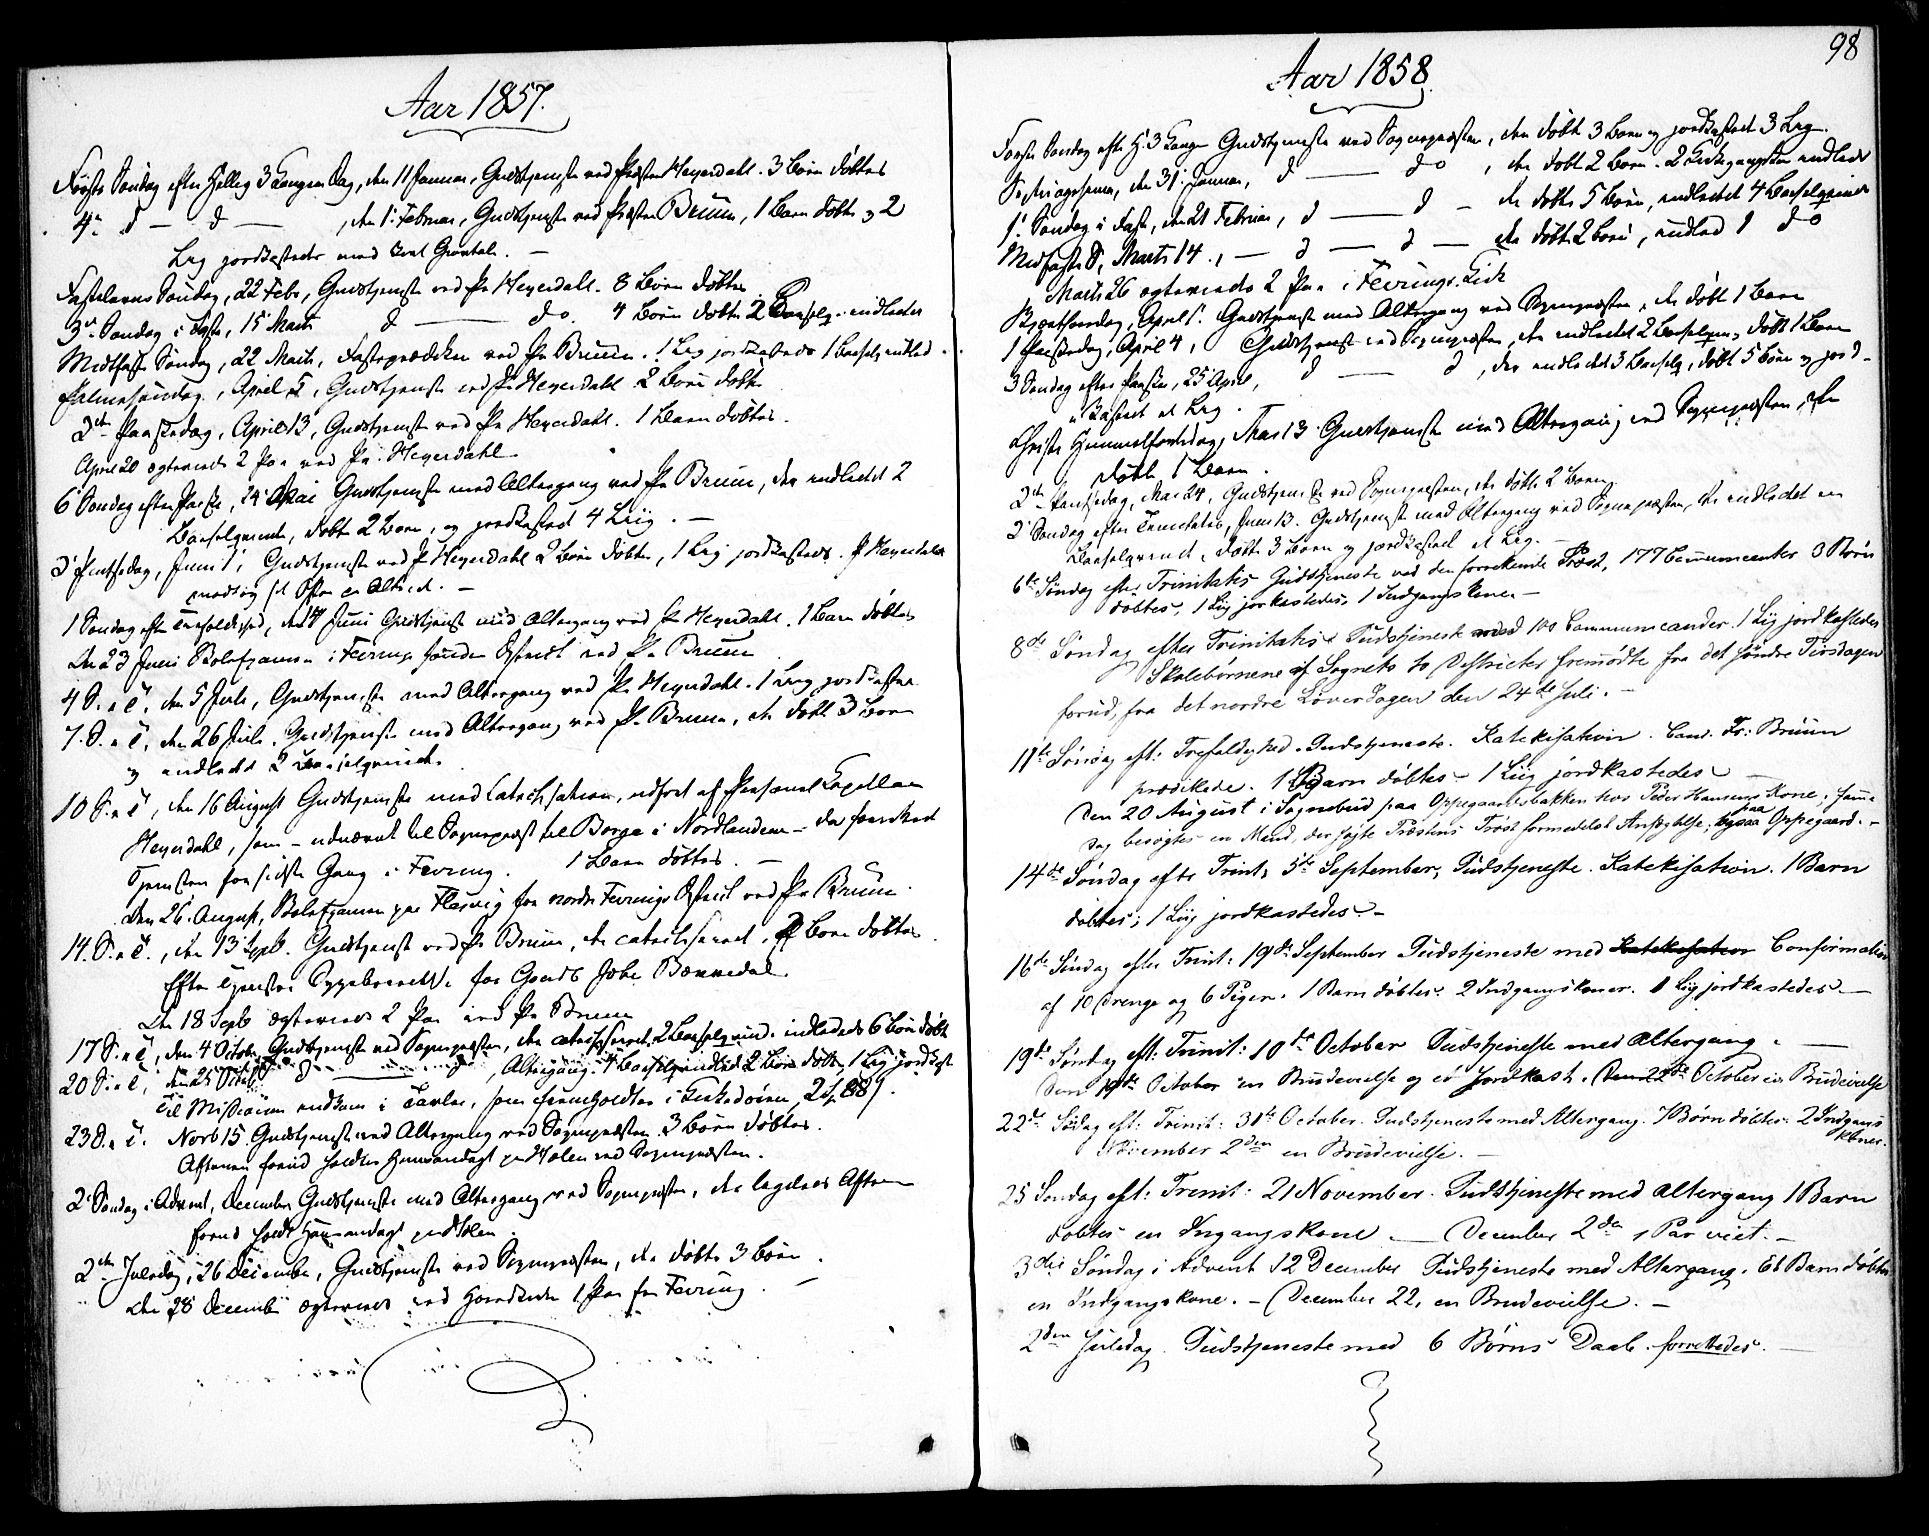 Aar 1857.
Første Søndag efter Hellig 3 Konger Dag, den 11 Januar, Gudstjeneste ved Præsten Heyerdahl. 3 Børn døbtes
4de d — d — , den 1 Februar, Gudstjeneste ved Præsten Bruun, 1 Barn døbtes og 2
Lig jordkastedes
Fastelavns Søndag, 22 Febr, Gudstjeneste ved Pr Heyerdahl. 8 Børn døbtes
3de Søndag i Faste, 15 Marts d — do. 4 Børn døbte 2 Barselq. indledes
Midtfaste Søndag, 22 Marts, Fasteprædiken ved Pr Bruun. 1 Lig jordkastedes 1 Barselq indled.
Palmesøndag, April 5, Gudstjeneste ved Pr Heyerdahl 2 Børn døbte
2den Paaskedag, April 13, Gudstjeneste ved Pr Heyerdahl. 1 Barn døbtes.
April 20 ægteviedes 2 Par ved Pr. Heyerdahl
6 Søndag efter Paaske, 24 Mai Gudstjeneste med Altergang ved Pr Bruun, der indledet 2
Barselqvinder, døbt 2 Børn, og jordkastet 4 Liig. —
2 Pintsedag, Juni 1, Gudstjeneste ved Pr Heyerdahl 2 Børn døbtes, 1 Lig jordkastedes. Pr Heyerdahl
modtog sit Offer
1 Søndag efter Trefoldighed, den 14 Juni Gudstjeneste med Altergang ved Pr Heyerdahl. 1 Barn døbtes
Den 23 Juni i Fevrings søndre District ved Pr Bruun
4 S. e. T. den 5 Juli, Gudstjeneste med Altergang ved Pr Heyerdahl. 1 Lig jordkastes
7. S. e. T. den 26 Juli. Gudstjeneste med Altergang ved Pr. Bruun, der døbt 3 Børn
og indledt 2 Barselqvinder.
10 S. e. T, den 16 August Gudstjeneste med Catechisation, udført af Personel Capellan
Heyerdahl, som — udnævnt til Sognepræst til Borge i Nordlandene — da forrettede
Tjenesten for sidste Gang i Fevring. 1 Barn døbtes. —
Den 26. August, paa Flesvig for nordre Fevrings District ved Pr Bruun.
14. S. e. T., den 13 Septb. Gudstjeneste ved Pr Bruun, der catechiseret. 2 Børn døbtes.
Efter Tjenesten
Den 18 Septb ægteviedes 2 Par ved Pr Bruun
17 S. e. T, den 4 October, Gudstjeneste ved Sognepræsten, der catechiseret, 2 Barselqvind. indledes 6 Børn døbt
20 S. e. T, den 25 Octob d — d, Altergang. 4 Barselq indled 2 Børn døbte, 1 Lig jordkast
Til Missionen indkom i Tavler, som fremholdtes i Kirkedøren
23 S. e. T. Novb 15. Gudstjeneste med Altergang ved Sognepræsten. 3 Børn døbtes.
Aftenen forud holdtes Huusandagt paa Holen ved Sognepræsten.
2 Søndag i Advent, December, Gudstjeneste med Altergang ved Sognepræsten, der ligeledes Aftenen
forud holdt Huusandagt paa Holen
2den Juledag, 26 December, Gudstjeneste ved Sognepræsten, der døbte 3 Børn.
Den 28 December ægteviedes ved 1 Par fra Fevring.
98
Aar 1858.
Første Søndag efter H. 3 Konger Gudstjeneste ved Sognepræsten, der døbt 3 Børn og jordkastet 3 Lig.
den 31 Januar, d — do, der døbt 2 Børn. 2 Kirkegangskoner indledes
1. Søndag i Faste, den 21 Februar, d — d — der døbte 5 Børn, indledet 4 Barselqvinder
Midfaste S, Marts 14., — d — d — der døbte 2 Børn, indled 1 do
Marts 26 ægteviedes 2 Par i Fevrings Kirk
Skjærtorsdag, April 1. Gudstjeneste med Altergang ved Sognepræsten, der døbt 1 Barn
1 Paaskedag, April 4, Gudstjeneste ved Sognepræsten, der indledet 2 Barselqvin, døbt 1 Barn
3 Søndag efter Paaske, 25 April, d — d, der indledet 3 Barselq, døbt 5 Børn og jord-
kastet et Lig.
Christi Himmelfartsdag, Mai 13 Gudstjeneste med Altergang ved Sognepræsten, der
døbte 1 Barn.
2den Pintsedag, Mai 24, Gudstjeneste ved Sognepræsten, der døbte 2 Børn
2 Søndag efter Trinitatis, Juni 13. Gudstjeneste med Altergang ved Sognepræsten, der indledet en
Barselqvind, døbt 3 Børn og jordkastet et Lig. —
6te Søndag efter Trinitatis Gudstjeneste ved den forrettende Præst, 177 Communicanter 3 Børn
døbtes, 1 Liig jorkastedes, 1 Indgangskone. —
8de Søndag efter Trinitatis Gudstjeneste med 100 Communicander. 1 Liig jordkastedes
Skolebørnene af Sognets to Districter fremmødte fra det søndre Tirsdagen
forud, fra det nordre Løverdagen den 24de Juli. —
11te Søndag eft: Trefoldighed. Gudstjeneste. Katekisation. Cand. Fr: Bruun
prædikede. 1 Barn døbtes — 1 Liig jordkastedes. —
Den 20 August i Sognebud paa Oppegaardsbakken hos Peder Hansens Kone, samme
Dag besøgtes en Mand, der søgte Præstens Trøst formedelst Anfægtelse, paa Oppegaard. —
14de Søndag efter Trinit: 5te September, Gudstjeneste. Katekisation. 1 Barn
døbtes; 1 Liig jordkastedes. —
16de Søndag efter Trinit: 19de September Gudstjeneste med Katekisation Confirmation
af 10 Drenge og 6 Piger. 1 Barn døbtes. 2 Indgangskoner. 1 Liig jordkastedes. —
19de Søndag eft: Trinit: 10de October Gudstjeneste med Altergang. —
Den October en Brudevielse og et Jordkast. Den 22de October en Brudevielse
22de Søndag eft: Trinit: 31te October. Gudstjeneste med Altergang. 7 Børn døbtes. 2 Indgangs
koner.
November 2den en Brudevielse. —
25 Søndag eft: Trinit: 21 November. Gudstjeneste med Altergang 1 Barn
døbtes en Ingangskone. — December 2den 1 Par viet. —
3die Søndag i Advent 12 December Gudstjeneste med Altergang. Et Barn døbtes
en Indgangskone. — December 22, en Brudevielse. —
2den Juledag. Gudstjeneste med 6 Børns Daab forrettedes. —